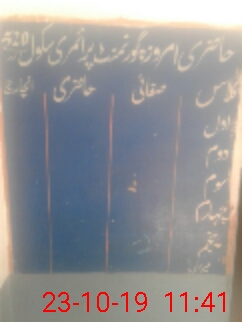 حاضری امروزہ گورنمنٹ پرائمری سکول 520
کلاس صفائی حاضری انچارج
اول
دوم
سوم
چہارم
پنجم
23-10-19 11:41